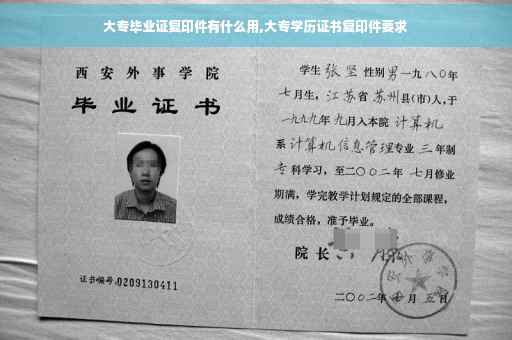 大专毕业证复印件有什么用,大专学历证书复印件要求
西安外事学院
毕业证书
证书编号:0209130411
学生 张坚 性别 男 一九八〇年
七月生,江苏省 苏州县(市)人,于
一九九九年 九月入本院 计算机
系 计算机信息管理专业 三 年制
专科学习,至二〇〇二年 七月修业
期满,学完教学计划规定的全部课程,
成绩合格,准予毕业。
院长
二〇〇二年 月 五日